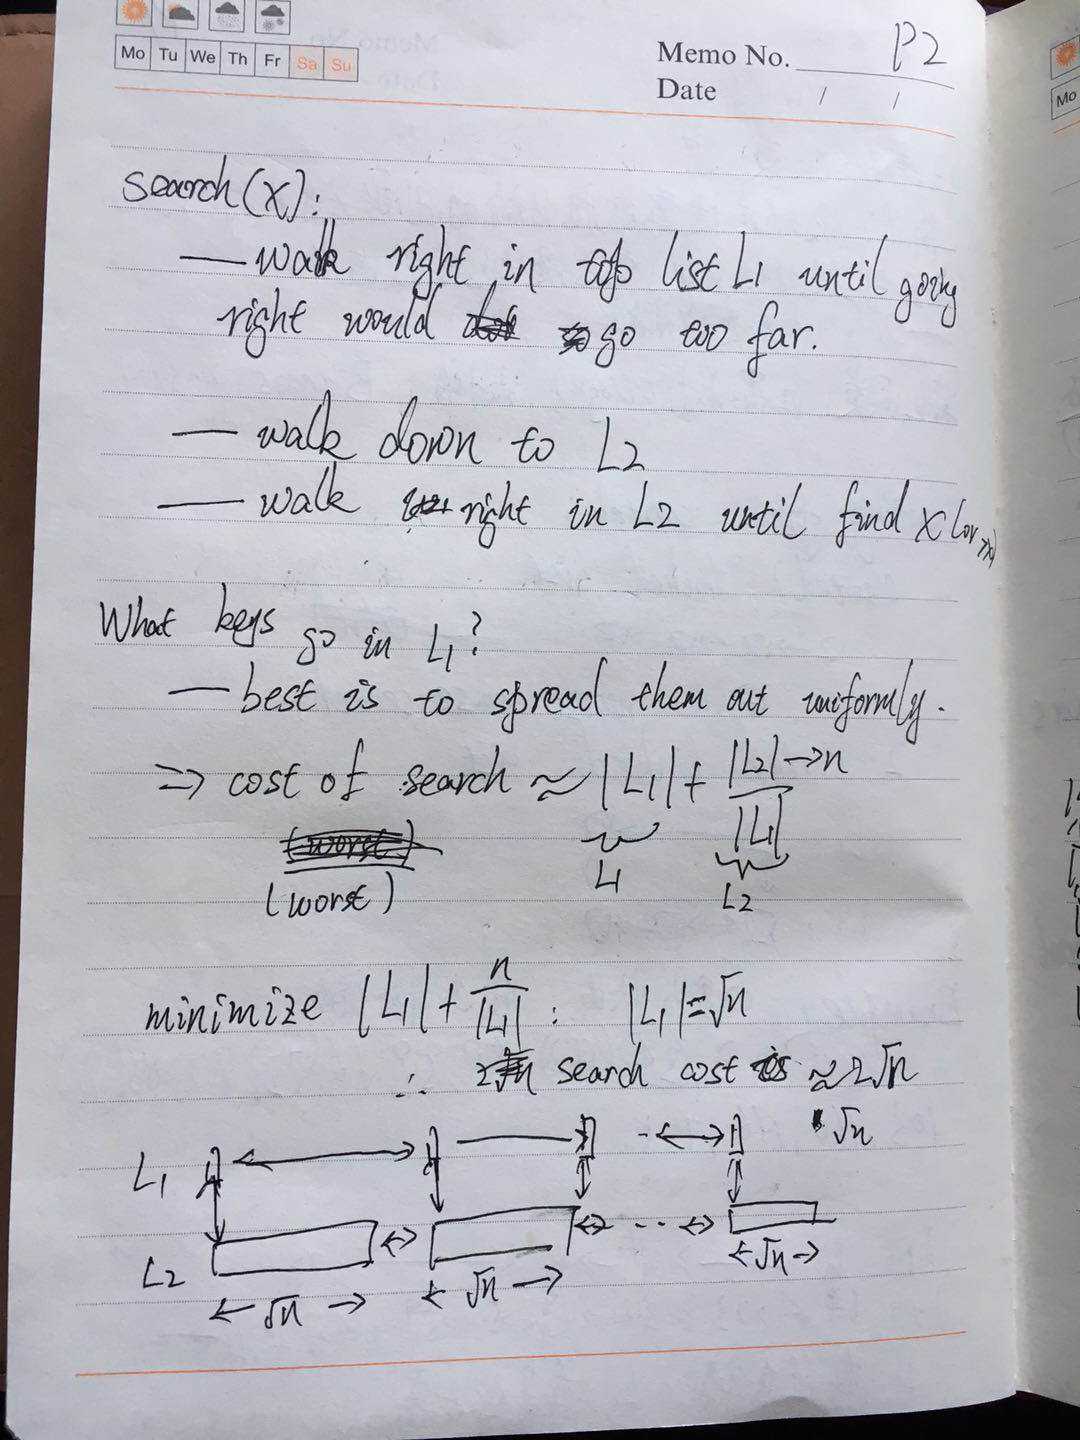 Mo Tu We Th Fr Sa Su
Memo No. P2
Date / /
search(x):
— walk right in top list L1 until going
right would go too far.
— walk down to L2
— walk right in L2 until find x (or >x)
What keys go in L1?
— best is to spread them out uniformly.
=> cost of search ≈ |L1| + |L2|→n / |L1|
(worst) L1 L2
(worst)
minimize |L1| + n/|L1| : |L1|=√n
∴ search cost is ≈ 2√n
L1 √n
L2 √n √n √n
Mo